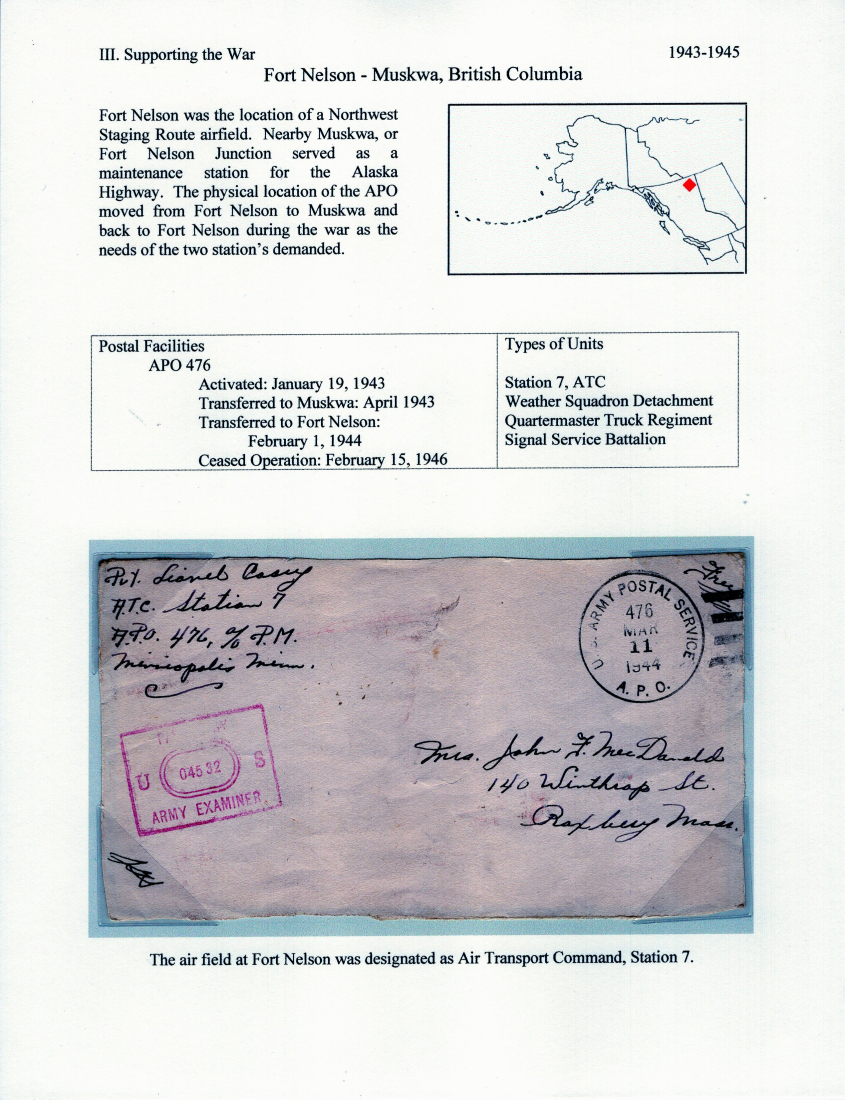 III. Supporting the War 1943-1945
Fort Nelson - Muskwa, British Columbia
Fort Nelson was the location of a Northwest
Staging Route airfield. Nearby Muskwa, or
Fort Nelson Junction served as a
maintenance station for the Alaska
Highway. The physical location of the APO
moved from Fort Nelson to Muskwa and
back to Fort Nelson during the war as the
needs of the two station's demanded.
Postal Facilities
APO 476
Activated: January 19, 1943
Transferred to Muskwa: April 1943
Transferred to Fort Nelson:
February 1, 1944
Ceased Operation: February 15, 1946
Types of Units
Station 7, ATC
Weather Squadron Detachment
Quartermaster Truck Regiment
Signal Service Battalion
Pvt. Lionel Casey
A.T.C. Station 7
A.P.O. 476, c/o P.M.
Minneopolis Minn.
Free
U.S. ARMY POSTAL SERVICE
476
MAR
11
1944
A. P. O.
U 04532 S
ARMY EXAMINER
Mrs. John F. MacDonald
140 Winthrop St.
Roxbury Mass.
The air field at Fort Nelson was designated as Air Transport Command, Station 7.